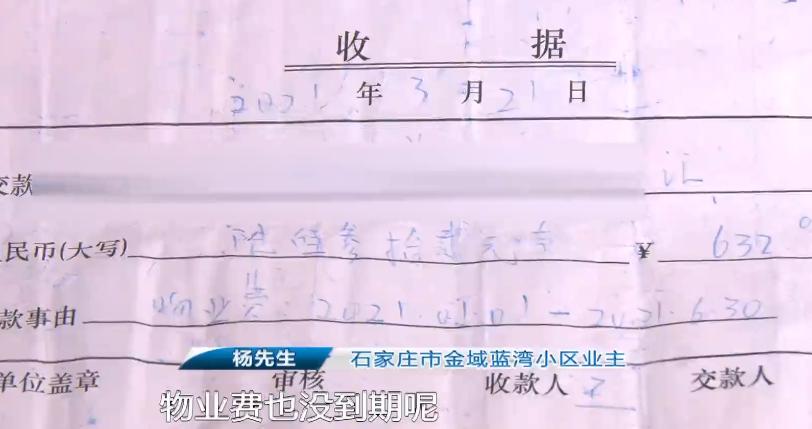 收 据
2021年3月21日
交款 汇
人民币(大写) 陆佰叁拾贰元 ¥ 632
款事由 物业费：2021.01.01-2021.6.30
杨先生 石家庄市金域蓝湾小区业主
单位盖章 审核 收款人 交款人
物业费也没到期呢